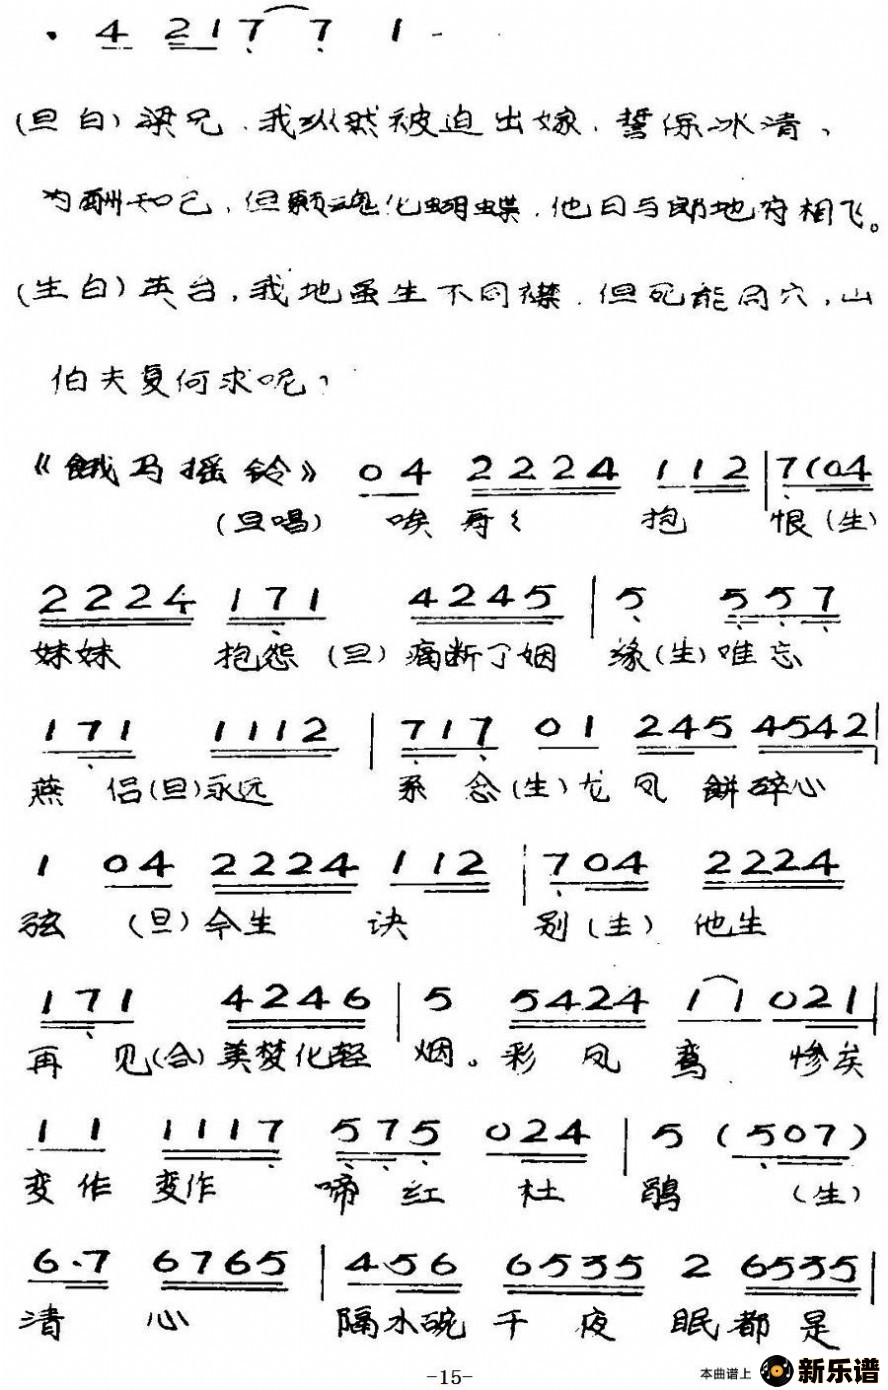 · 4 2 1 7 7 1 -
(旦白) 梁兄，我纵然被迫出嫁，誓保冰清，
为酬知己，但愿魂化蝴蝶，他日与郎地府相飞。
(生白) 英台，我地虽生不同襟，但死能同穴，山
伯夫复何求呢？
《饿马摇铃》 0 4 2 2 2 4 1 1 2 | 7 (0 4
(旦唱) 唉哥〻 抱 恨 (生)
2 2 2 4 1 7 1 4 2 4 5 | 5 5 5 7
妹妹 抱怨 (旦) 痛断了姻 缘 (生) 唯忘
1 7 1 1 1 1 2 | 7 1 7 0 1 2 4 5 4 5 4 2 |
燕 侣 (旦) 永远 系 念 (生) 龙 凤 餅碎心
1 0 4 2 2 2 4 1 1 2 | 7 0 4 2 2 2 4
弦 (旦) 今生 诀 别 (生) 他生
1 7 1 4 2 4 6 | 5 5 4 2 4 1 1 0 2 1 |
再 见 (合) 美梦化轻 烟。彩 凤 鸾 惨矣
1 1 1 1 1 7 5 7 5 0 2 4 | 5 ( 5 0 7 )
变 作 变作 啼 红 杜 鹃 (生)
6 · 7 6 7 6 5 | 4 · 5 6 6 5 3 5 2 6 5 3 5 |
清 心 隔水碗 千 夜 眠 都 是
-15-
本曲谱上 新乐谱